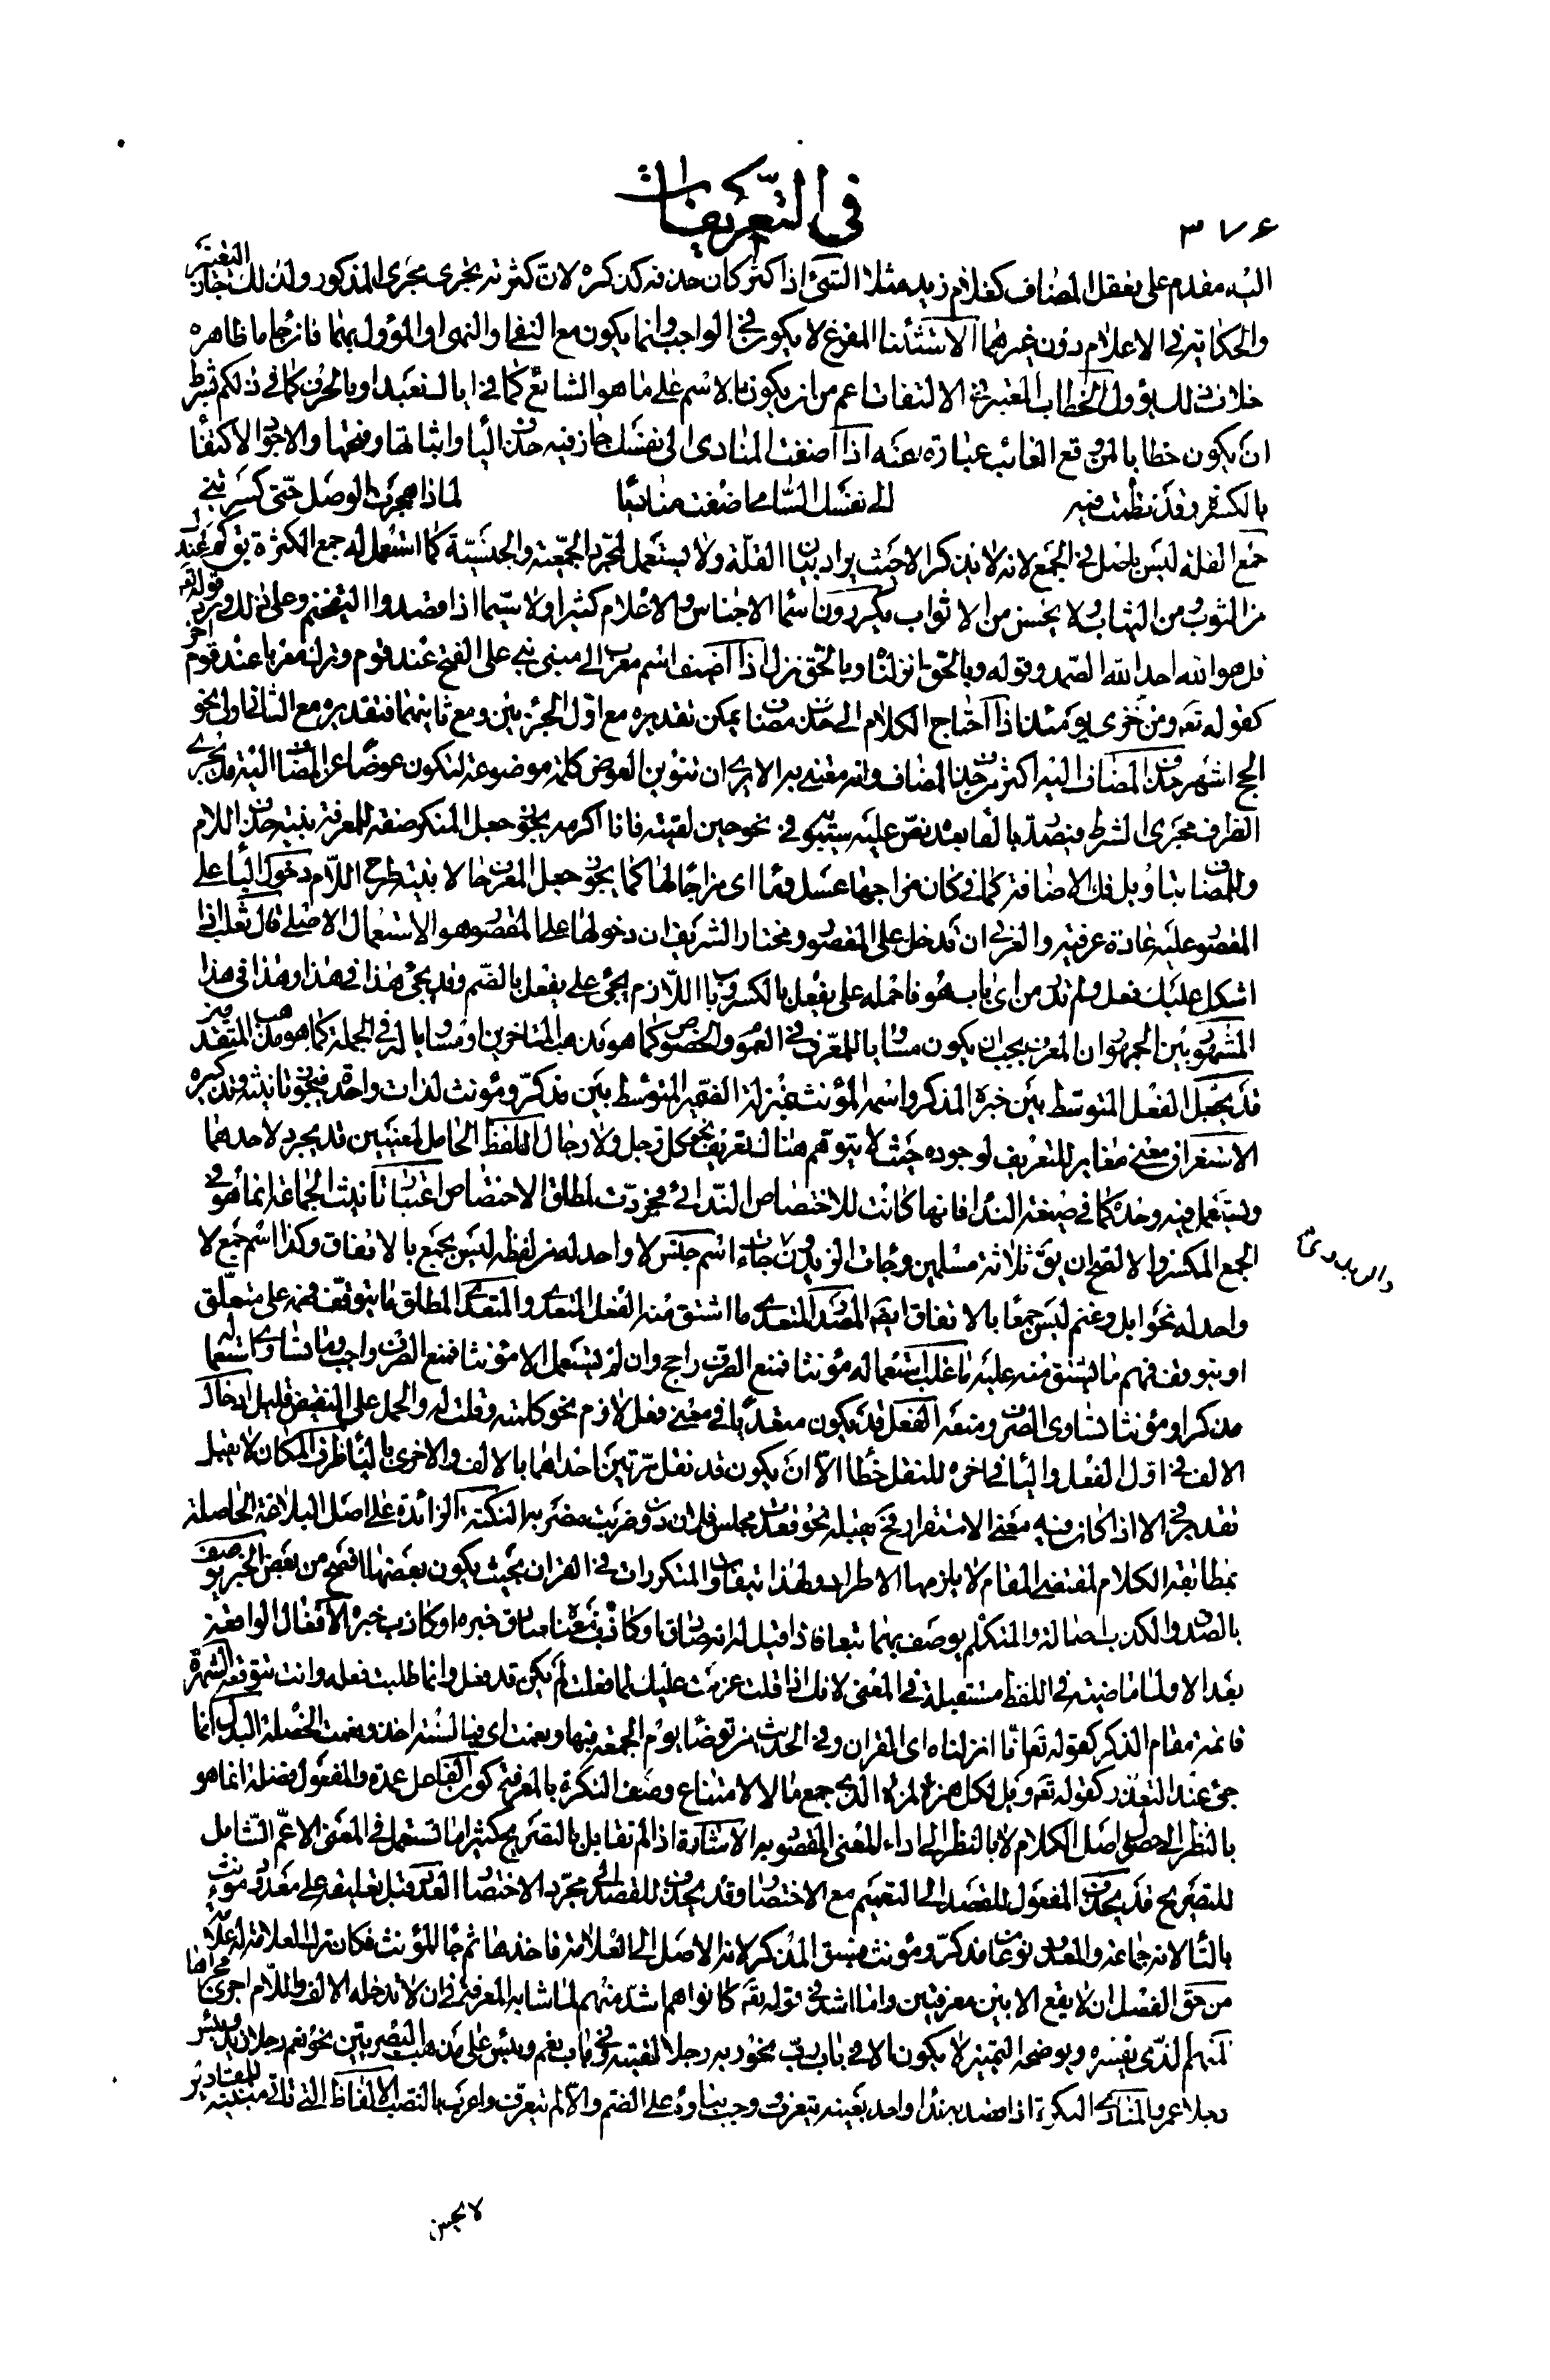 في التعريفات
٣٧٦
اليه مقدم على تعقل المضاف كغلام زيد مثلا الشئ اذا كثر كان حذفه كذكره لان كثرته تجرى مجرى المذكور ولذلك جاز التغيير
والحكاية في الاعلام دون غيرها الاستثناء المفرغ لا يكون في الواجب وانما يكون مع النفى والنهى او المؤول بهما فان جاء ما ظاهره
خلاف ذلك يؤول الخطاب المعتبر في الالتفات اعم من ان يكون بالاسم على ما هو الشائع كما في اياك نعبد او بالحرف كما في ذلكم بشرط
ان يكون خطابا لمن وقع الغائب عبارة عنه اذا اضفت المنادى الى نفسك جاز فيه حذف اليا واثباتها وفتحها والاجود الاكتفا
بالكسرة وقد نظمت فيه الى نفسك السامى اضفت مناديا لماذا هجرت الوصل حتى كسرتنى
جمع القلة ليس باصل في الجمع لانه لا يذكر الا حيث يراد بيان القلة ولا يستعمل لمجرد الجمعية والجنسية كما استعمل له جمع الكثرة يق كم عند
من الثوب من الثياب ولا يحسن من الاثواب يكررون اسما الاجناس والاعلام كثيرا ولا سيما اذا قصدوا التفخيم وعلى ذلك ورد قوله تع
قل هو الله احد الله الصمد وقوله وبالحق انزلناه وبالحق نزل اذا اضيف اسم معرب الى مبنى بنى على الفتح عند قوم وترك معربا عند قوم اخر
كقوله تع ومن خزى يومئذ اذا احتاج الكلام الى حذف مضاف يمكن تقديره مع اول الجزئين ومع ثانيهما فتقديره مع الثانى اولى نحو
الحج اشهر حذف المضاف اليه اكثر من حذف المضاف وانه مقيس به الا يرى ان تنوين العوض كلمة موضوعة لتكون عوضا عن المضاف اليه قد يجرى
الظرف مجرى الشرط فيصدر بالفا بعده نص عليه سيبويه في نحو حين لقيته فانا اكرمه يجوز جعل المنكر صفة للمعرفة بنية حذف اللام
وللمضاف بتاويل فك الاضافة كما في كان مزاجها عسل وما اى مزاجا لها كما يجوز جعل المعرف حالا بنية طرح اللام دخول البا على
المقصور عليه عادة عرفية والعربى ان تدخل على المقصور ومختار الشريف ان دخولها على المقصور هو الاستعمال الاصلى قال ثعلب اذا
اشكل عليك فعل ولم تدر من اى باب هو فاحمله على يفعل بالكسر وباب اللازم يجئ على يفعل بالضم وقد يجئ هذا في هذا وهذا في هذا
المشهور بين الجمهور ان المعرف يجب ان يكون مساويا للمعرف في العموم والخصوص كما هو مذهب المتاخرين او مساويا له في الجملة كما هو مذهب المتقدمين
قد يجعل الفعل المتوسط بين خبره المذكر واسمه المؤنث بمنزلة الضمير المتوسط بين مذكر ومؤنث لذات واحدة فيجوز تانيثه وتذكيره
الاستغراق معنى مغاير للتعريف لوجوده حيث لا يتوهم هناك تعريف نحو كل رجل ولا رجال اللفظ الحامل لمعنيين قد يجرد لاحدهما
ويستعمل فيه وحده كما في صيغة الندا فانها كانت للاختصاص الندائى فجردت لمطلق الاختصاص اعتبار تانيث الجماعة انما هو في
الجمع المكسر والا لصح ان يق ثلاثة مسلمين وجات الزيدون جات اسم جنس لا واحد له من لفظه ليس بجمع بالاتفاق وكذا اسم جمع لا
واحد له نحو ابل وغنم ليس جمعا بالاتفاق ايضا المصدر المتعدى ما اشتق منه الفعل المتعدى والمتعدى المطلق ما يتوقف فهمه على متعلق
او يتوقف فهم ما يشتق منه عليه ما غلب استعماله مؤنثا فمنع الصرف راجح وان لم يستعمل الا مؤنثا فمنع الصرف واجب وما تساوى استعماله
مذكرا ومؤنثا تساوى الصرف ومنعه الفعل قد يكون متعديا في معنى فعل لازم نحو كلمته وقلت له والحمل على النقيض قليل ادخال
الالف في اول الفعل واليا في اخره للنقل خطا الا ان يكون قد نقل مرتين احداهما بالالف والاخرى باليا ظرف المكان لا يقبل
تقدير في الا اذا كان فيه معنى الاستقرار فح يقبله نحو قعدت مجلس فلان دون ضربت مضربه النكتة الزائدة على اصل البلاغة الحاصلة
بمطابقة الكلام لمقتضى المقام لا يلزمها الاطراد ولهذا تتفاوت المتكررات في القران بحيث يكون بعضها افصح من بعض الخبر يوصف
بالصدق والكذب اصالة والمتكلم يوصف بهما تبعا فاذا قيل له انه صادق او كاذب فمعناه صادق خبره او كاذب خبره الافعال الواقعة
بعد الا ولما ماضية في اللفظ مستقبلة في المعنى لانك اذا قلت عزمت عليك لما فعلت لم يكن قد فعل وانما طلبت فعله وانت تتوقعه الشهرة
قائمة مقام الذكر كقوله تع انا انزلناه اى القران وفي الحديث من توضا يوم الجمعة فبها ونعمت اى فبالسنة اخذ ونعمت الخصلة البدل انما
جئ عند التعذر كقوله تع ويل لكل همزة لمزة الذى جمع مالا لامتناع وصف النكرة بالمعرفة كون الفاعل عمدة والمفعول فضلة انما هو
بالنظر الى حصول اصل الكلام لا بالنظر الى اداء المعنى المقصود به الاشارة اذا لم تقابل بالتصريح كثيرا ما تستعمل في المعنى الاعم الشامل
للتصريح قد يحذف المفعول للقصد الى التعميم مع الاختصار وقد يحذف للقصد الى مجرد الاختصار العدد قبل تعليقه على معدود مؤنث
بالتا لانه جماعة والمعدود نوعان مذكر ومؤنث فسبق المذكر لانه الاصل الى العلامة فاخذها ثم جا المؤنث فكان ترك العلامة له علامة
من حق الفصل ان لا يقع الا بين معرفتين واما اشد في قوله تع كانوا هم اشد منهم لما شابه المعرفة في ان لا تدخله الالف واللام اجرى مجراها
المبهم الذى يفسره ويوضحه التمييز لا يكون الا في باب رب نحو ربه رجلا لقيته وفي باب نعم وبئس على مذهب البصريين نحو نعم رجلا زيد وبئس
رجلا عمرو المنادى النكرة اذا قصد به ندا واحد بعينه يتعرف ووجب بناوه على الضم والا لم يتعرف واعرب بالنصب الالفاظ التى تاتى مبينة للمقادير
لا يحسن